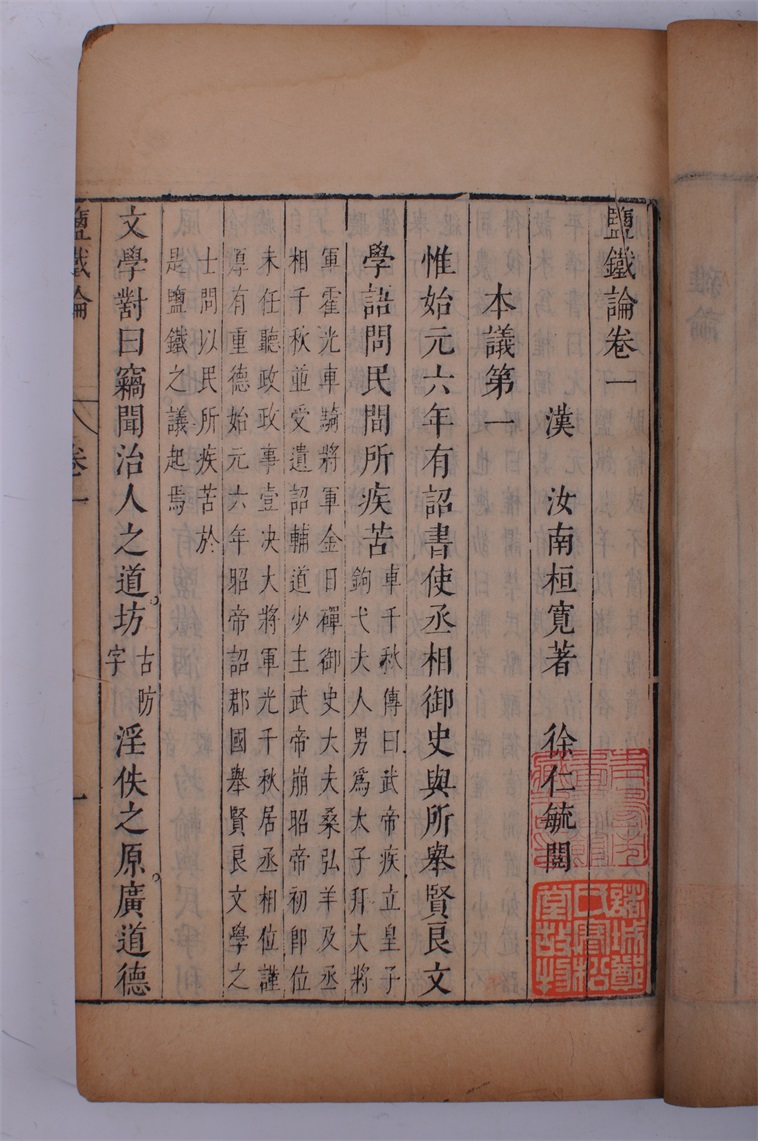 鹽鐵論卷一
漢 汝南桓寬著 徐仁毓閱
本議第一
惟始元六年有詔書使丞相御史與所舉賢良文
學語問民間所疾苦
車千秋傳曰武帝疾立皇子
鉤弋夫人男爲太子拜大將
軍霍光車騎將軍金日磾御史大夫桑弘羊及丞
相千秋並受遺詔輔道少主武帝崩昭帝初卽位
未任聽政政事壹决大將軍光千秋居丞相位謹
厚有重德始元六年昭帝詔郡國舉賢良文學之
士問以民所疾苦於
是鹽鐵之議起焉
文學對曰竊聞治人之道坊古防字淫佚之原廣道德
鹽鐵論 卷一 一